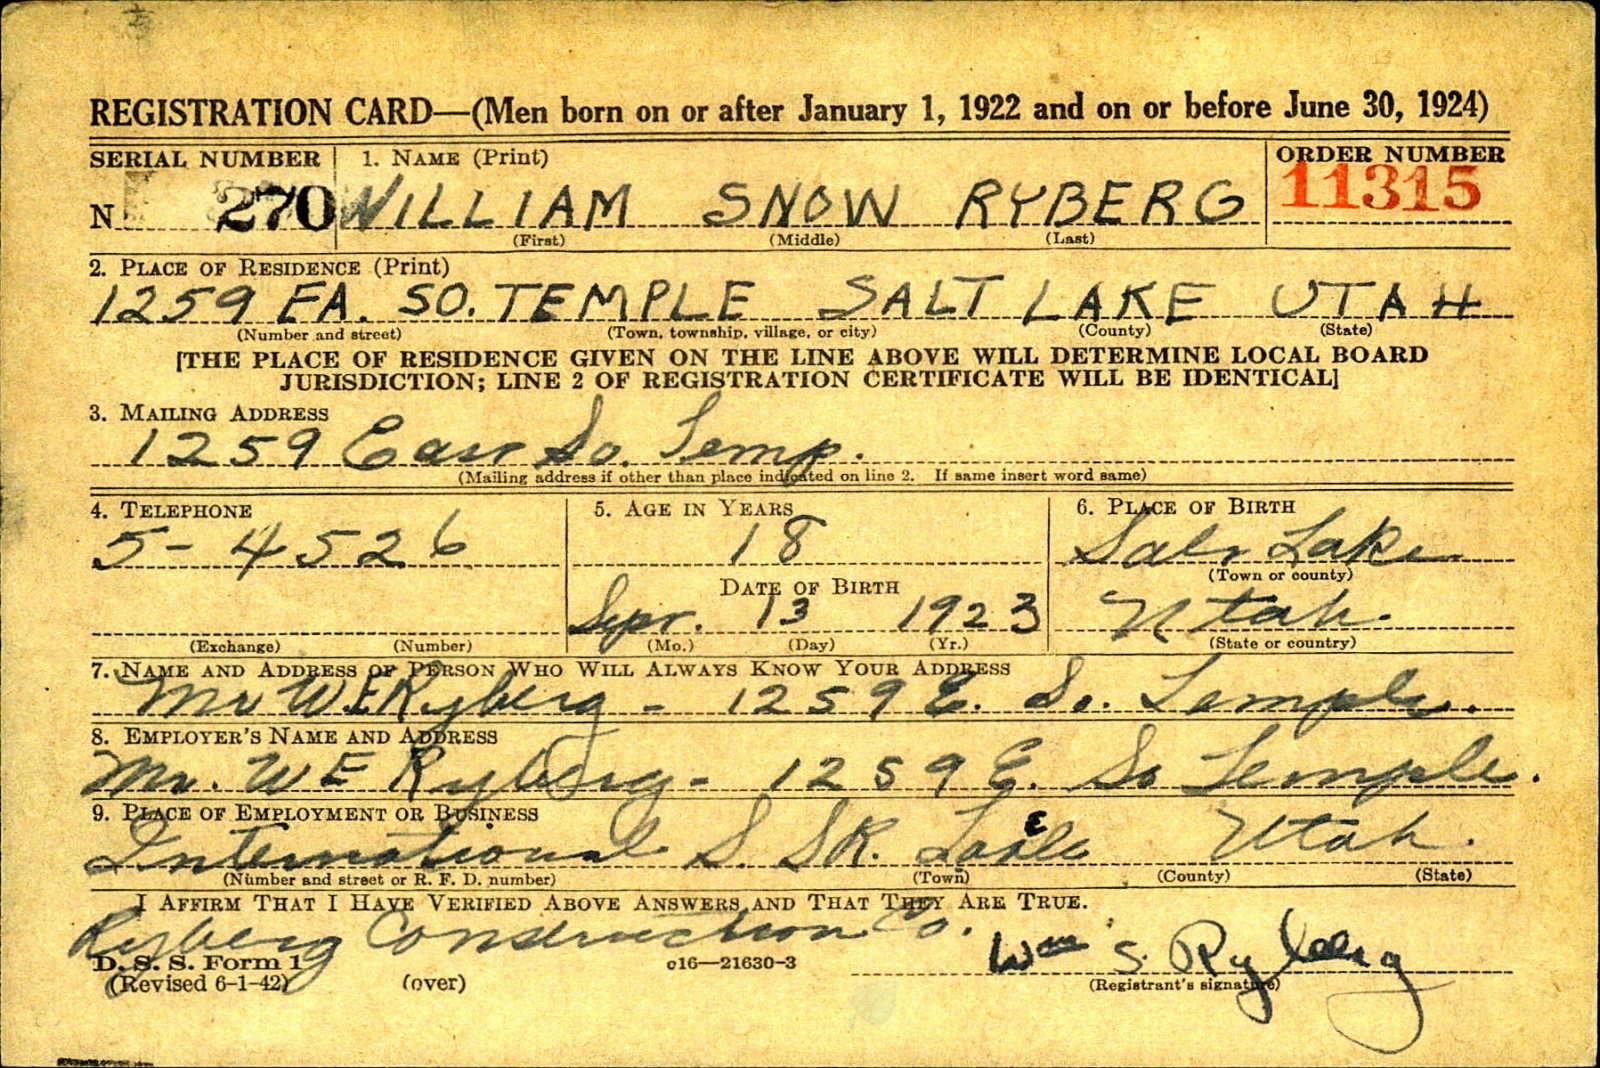 REGISTRATION CARD—(Men born on or after January 1, 1922 and on or before June 30, 1924)
SERIAL NUMBER 1. NAME (Print) ORDER NUMBER
N 270 WILLIAM SNOW RYBERG 11315
(First) (Middle) (Last)
2. PLACE OF RESIDENCE (Print)
1259 EA. SO. TEMPLE SALT LAKE UTAH
(Number and street) (Town, township, village, or city) (County) (State)
[THE PLACE OF RESIDENCE GIVEN ON THE LINE ABOVE WILL DETERMINE LOCAL BOARD
JURISDICTION; LINE 2 OF REGISTRATION CERTIFICATE WILL BE IDENTICAL]
3. MAILING ADDRESS
1259 East So. Temp.
(Mailing address if other than place indicated on line 2. If same insert word same)
4. TELEPHONE 5. AGE IN YEARS 6. PLACE OF BIRTH
5-4526 18 Salt Lake
(Town or county)
DATE OF BIRTH
Sept. 13 1923 Utah.
(Exchange) (Number) (Mo.) (Day) (Yr.) (State or country)
7. NAME AND ADDRESS OF PERSON WHO WILL ALWAYS KNOW YOUR ADDRESS
Mr W E Ryberg - 1259 E. So. Temple.
8. EMPLOYER'S NAME AND ADDRESS
Mr. W E Ryberg - 1259 E. So Temple.
9. PLACE OF EMPLOYMENT OR BUSINESS
International S. Utah.
(Number and street or R. F. D. number) (Town) (County) (State)
I AFFIRM THAT I HAVE VERIFIED ABOVE ANSWERS AND THAT THEY ARE TRUE.
Ryberg Construction Co.
Wm S. Ryberg
D. S. S. Form 1 c16—21630-3
(Revised 6-1-42) (over) (Registrant's signature)